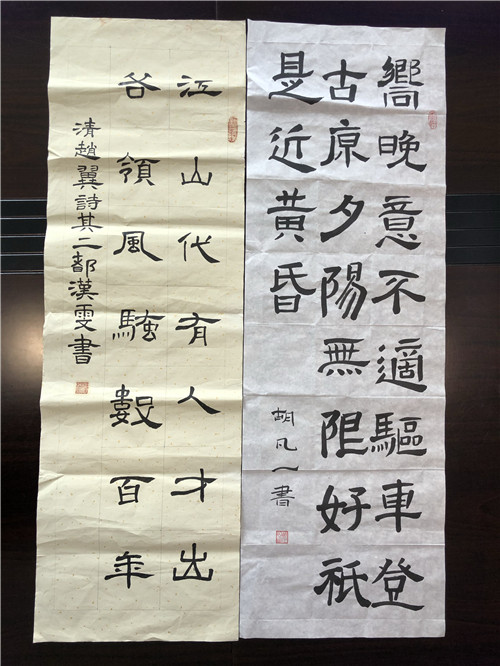 嚮晚意不適驅車登
古原夕陽無限好祇
是近黄昏
胡凡一書
江山代有人才出
各領風騷數百年
清趙翼詩其二都漢雯書